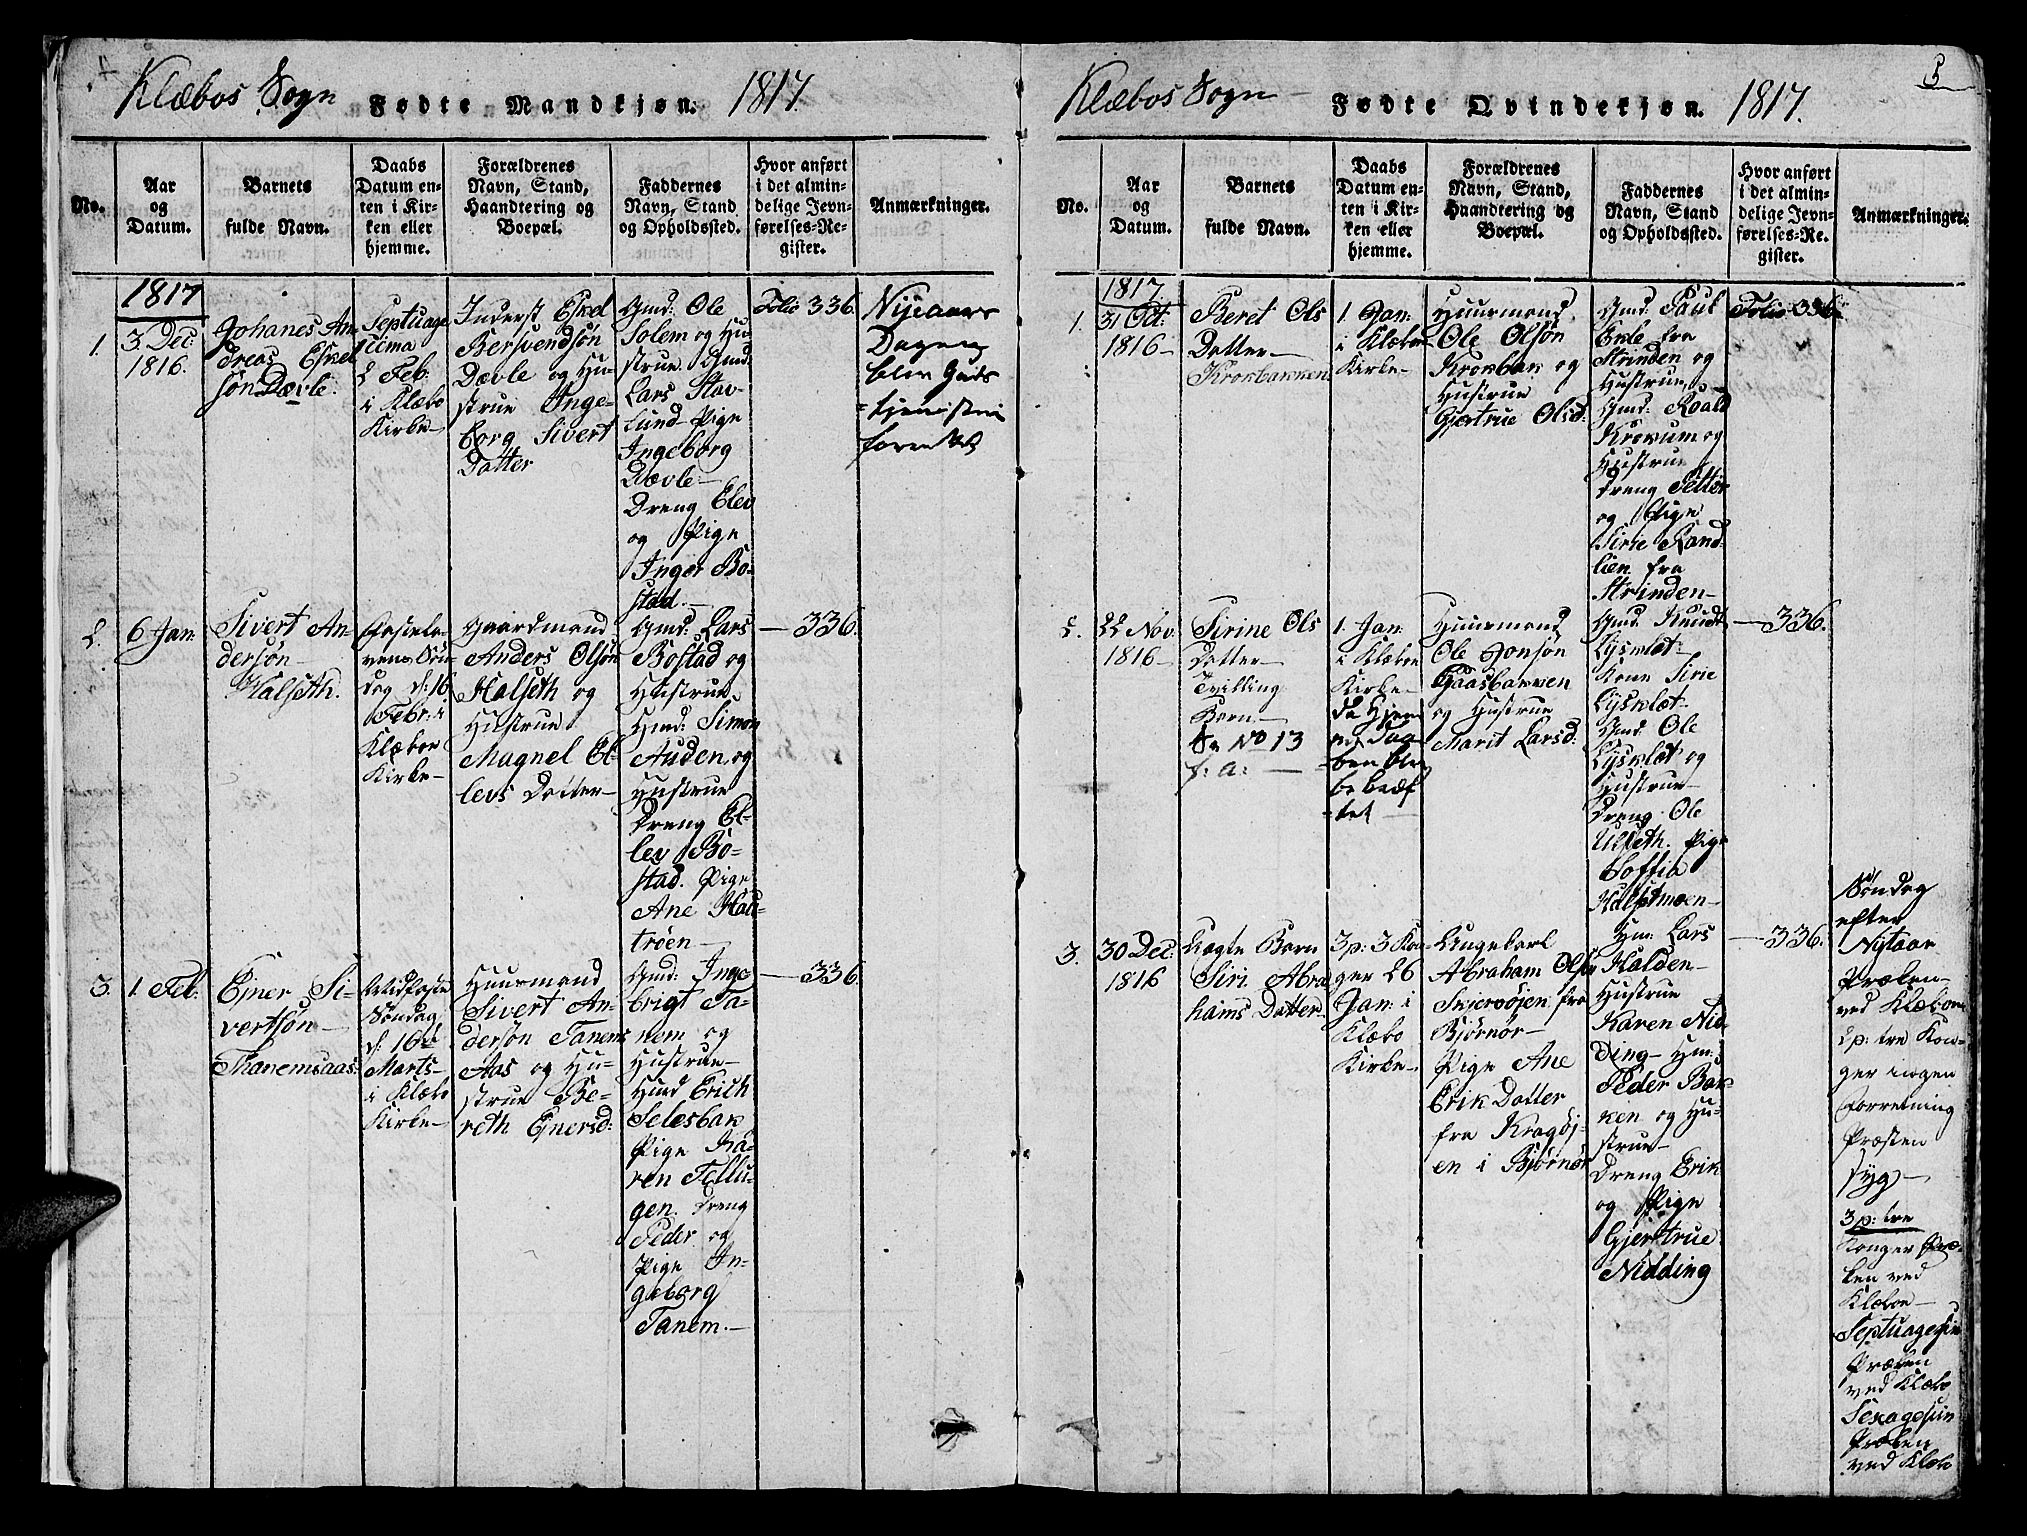 Klæbos Sogn Fødte Mandkjøn. 1817.
No.
Aar
og
Datum.
Barnets
fulde Navn.
Daabs
Datum en-
ten i Kir-
ken eller
hjemme.
Forældrenes
Navn, Stand,
Haandtering og
Boepæl.
Faddernes
Navn, Stand
og Opholdssted.
Hvor anført
i det almin-
delige Jevn-
førelses-Re-
gister.
Anmærkninger.
1817
1.
3. Dec:
1816.
Johanes An
dreas Eskel
søn Dævle.
Septuage
cima
2 Feb:
i Klæbo
Kirke
Inderst Eskel
Bersvendsøn
Dævle og Hu-
strue Inge-
borg Sivert
Datter
Gmd: Ole
Solem og Hu-
strue. Gmd:
Lars Stav-
lund Pige
Ingeborg
Dævle
Dreng Elev
og Pige
Inger Bo-
stad.
Folio 336.
Nijeaars
Dagen
blev Guds
tjenisten
forrettet
2.
6 Jan:
Sivert An-
dersøn
Halseth.
Fastela-
vens Søn-
dag d: 16
Febr: i
Klæboe
Kirke
Gaardmand
Anders Olsøn
Halseth og
Hustrue
Magnel El-
levs Datter
Gmd: Lars
Bostad og
Hustrue.
Gmd: Simon
Auden og
Hustrue
Dreng El-
lev Bo-
stad. Pige
Ane Hau-
trøen
336.
3.
1. Feb:
Ejner Si-
vertsøn
Thanemsaas.
Midfaste
Søndag
d: 16de
Marts
i Klæbo
Kirke
Huusmand
Sivert An-
dersøn Tanems
Aas og Hu-
strue Be-
reth Ejnersd:
Gmd: Inge-
brigt Ta-
nem og
Hustrue
Hmd Erich
Selesbak
Pige Ka-
ren Tellu-
gen. Dreng
Peder og
Pige In-
geborg
Tanem.
336.
Klæbos Sogn Fødte Qvindekjøn. 1817.
5
No.
Aar
og
Datum.
Barnets
fulde Navn.
Daabs
Datum en-
ten i Kir-
ken eller
hjemme.
Forældrenes
Navn, Stand,
Haandtering og
Boepæl.
Faddernes
Navn, Stand
og Opholdssted.
Hvor anført
i det almin-
delige Jevn-
førelses-Re-
gister.
Anmærkninger.
1817
1.
31 Oct:
1816
Beret Ols
Datter
Krokbakken
1. Jan:
i Klæboe
Kirke
Huusmand
Ole Olsøn
Krokbak og
Hustrue
Gjertrue Olsd:
Gmd: Paul
fra
Strinden og
Hustrue
Gmd: Roald
Krokum og
Hustrue
Dreng Petter
og Pige
Sirie Rand-
lien fra
Strinden
Folio 336.
2.
22 Nov:
1816
Sirine Ols
Datter
Tvilling
Barn
Se No 13
f: a:
1. Jan:
i Klæboe
Kirke
da Hjem
me Daa
ben blev
bekræf
tet
Huusmand
Ole Jonsøn
Gaasbakken
og Hustrue
Marit Larsd:
Gmd: Knudt
Lysklæt
Kone Sirie
Lysklæt
Gmd: Ole
Lysklæt og
Hustrue
Dreng Ole
Ulseth. Pige
Soffia
Halsetmoen
336.
3.
30 Dec:
1816
Uægte Barn
Siri Abra
hams Datter
3 p: 3 Kon-
ger 26
Jan: i
Klæbo
Kirke
Ungekarl
Abraham Olsen
Skjervøjen fra
Bjørnør
Pige Ane
Erik Datter
fra Kragøj-
en i Bjørnør
Hm: Lars
Halden
Hustrue
Karen Nid
ding Hm:
Peder Bak
ken og Hu-
strue
Dreng Erik
og Pige
Gjertrue
Nidding
336.
Søndag
efter
Nytaar
Præken
ved Klæboe
2 p: tre Kon-
ger ingen
Forretning
Præsten
syg
3 p: tre
Konger Præ-
ken ved
Klæboe
Septuagesim
Præken
ved Klæbo
Sexagesim
Præken
ved Klæbo